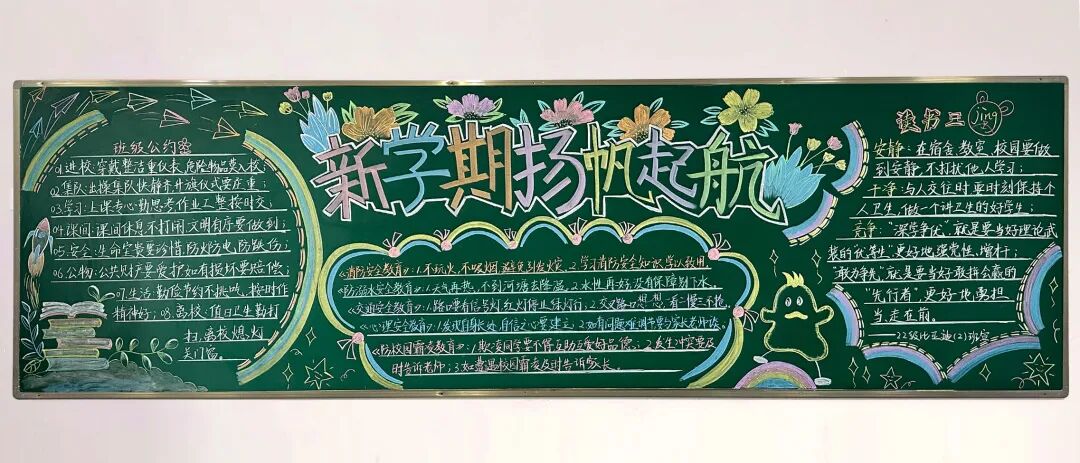 新学期扬帆起航
班级公约
01.进校:穿戴整洁重仪表,危险物品莫入校
02.集队:出操集队快静齐升旗仪式要庄重;
03.学习:上课专心勤思考作业工整按时交;
04.课间:课间休息不打闹文明有序要做到;
05.安全:生命宝贵要珍惜防火防电,防跌伤;
06.公物:公共财产要爱护如有损坏要赔偿;
07.生活:勤俭节约不挑食,按时作
精神好;08.离校:值日卫生勤打
扫,离校熄灯
关门窗
《消防安全教育》:1.不玩火,不吸烟,避免引发火灾.2.学习消防安全知识,学以致用
《防溺水安全教育》:1.天气再热,不到河塘去降温,2.水性再好,没有保障别下水.
《交通安全教育》:1.路口要看信号灯,红灯停止绿灯行;2.交叉路口想一想,看一慢三不抢.
《心理安全教育》:1.发现自身长处,自信之心要建立;2.如有问题难调节要与家长老师谈.
《防校园霸凌教育》:1.欺凌同学要不得,互助互爱好品德;2.发生冲突要及
时告诉老师;3.如遭遇校园霸凌及时告诉家长.
读书三
Jing
安静:在宿舍,教室,校园要做
到安静,不打扰他人学习;
干净:与人交往时要时刻保持个
人卫生,做一个讲卫生的好学生;
竞争:"深学争优"就是要当好理论武
装的"优等生"更好地强党性,增本;
"敢为争先"就是要当好敢拼会赢的
"先行者"更好地勇担
当,走在前。
22级比亚迪(2)班宣